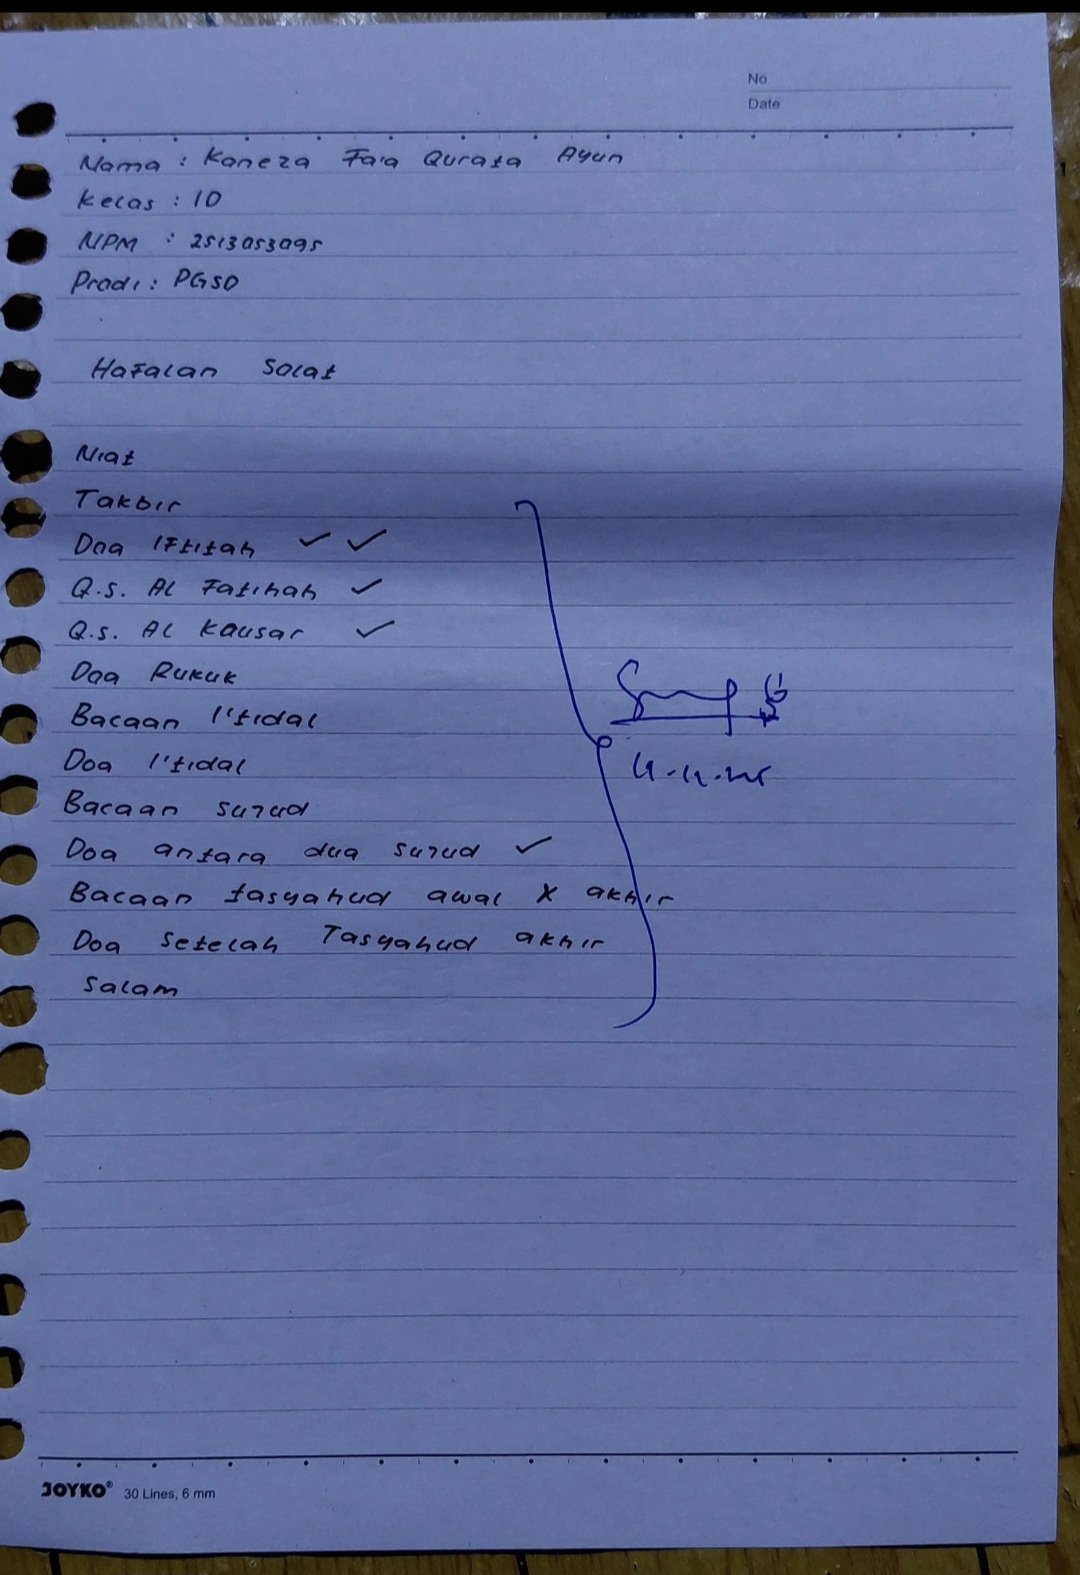 No
Date
Nama : Kaneza Faia Qurata Ayun
Kelas : 10
NPM : 2513053095
Prodi : PGSD
Hafalan Solat
Niat
Takbir
Doa Iftitah ✓ ✓
Q.s. Al Fatihah ✓
Q.s. Al Kausar ✓
Doa Rukuk
Bacaan I'tidal
Doa I'tidal
Bacaan sujud
Doa antara dua sujud ✓
Bacaan tasyahud awal X akhir
Doa setelah Tasyahud akhir
Salam
JOYKO® 30 Lines, 6 mm